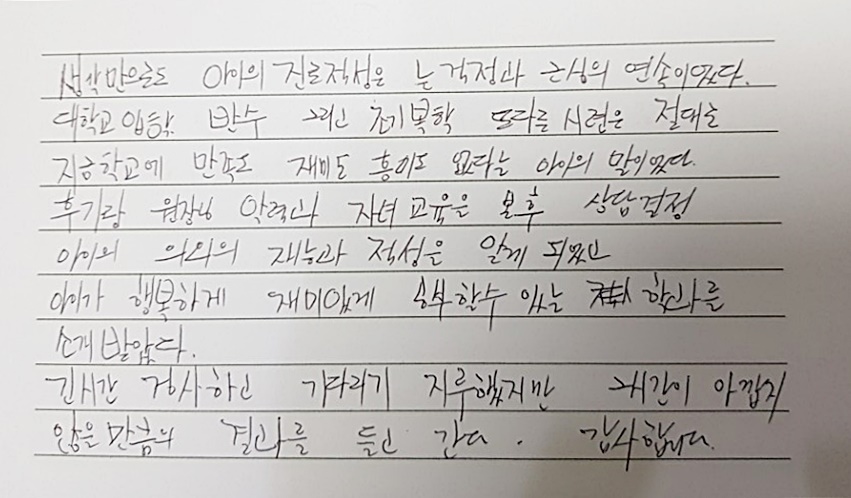 생각만으로도 아이의 진로적성은 늘 걱정과 근심의 연속이였다.
대학교입학 반수 그리고 초기복학 또다른 시련은 절대로
지금학교에 만족도 재미도 흥미도 없다는 아이의 말이였다.
후기랑 원장님 약력과 자녀교육을 본후 상담결정
아이의 의외의 재능과 적성을 알게 되었고
아이가 행복하게 재미있게 공부할수 있는 학과를
소개받았다.
긴시간 검사하고 기다리기 지루했지만 그시간이 아깝지
않을만큼의 결과를 듣고 간다. 감사합니다.